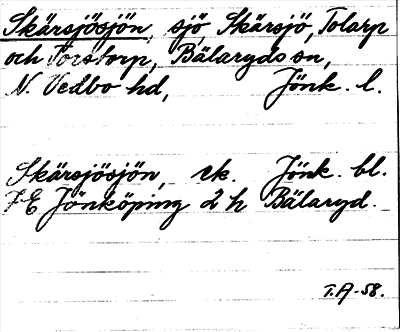 Skärsjösjön, sjö, Skärsjö, Tolarp
och Torstorp, Bälaryds sn,
N. Vedbo hd, Jönk. l.
Skärsjösjön, ek. Jönk. bl.
7E Jönköping 2 h Bälaryd.
T.A-58.